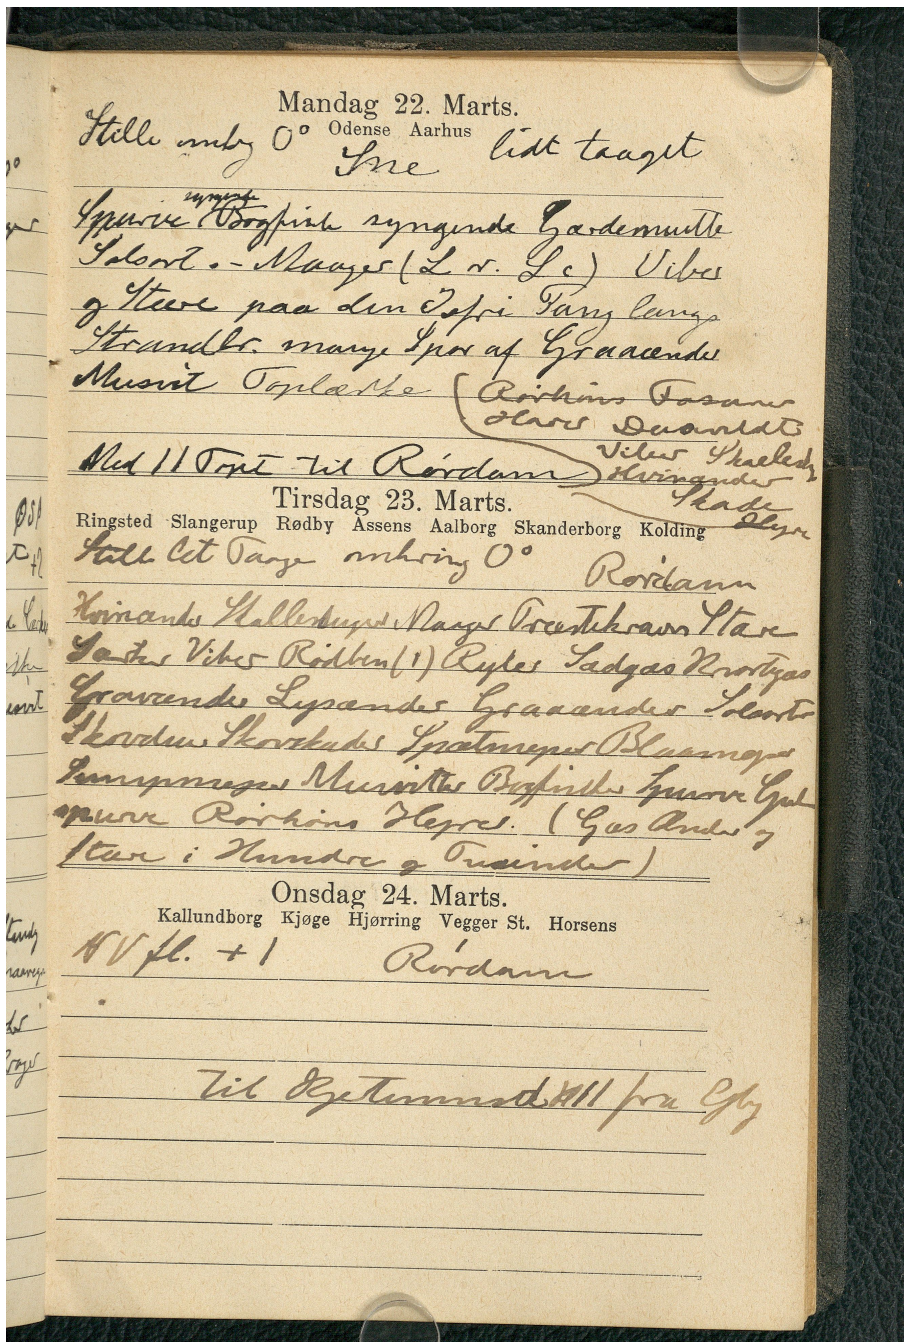 Mandag 22. Marts.
Odense Aarhus
Stille omkg 0° lidt taaget
Sne
syngende
Spurve Bogfink syngende Gærdesmutte
Solsort. - Maager (L v. L c) Viber
og Stære paa den Isfri Tang langs
Strandbr. mange Spor af Graaænder
Musvit Toplærke
Rørhøns Fasaner
Harer Daavildt
Viber
Hvinænder
Skade
Med 11 Toget til Rørdam
Tirsdag 23. Marts.
Ringsted Slangerup Rødby Assens Aalborg Skanderborg Kolding
Stille let Taage omkring 0°
Rørdam
Hvinænder Skallesluger Maager Stære
Viber Rødben (1) Ryler Sædgæs Knortgæs
Gravænder Lysænder Graaænder Solsorte
Skovduer Skovskader Spætmejser Blaamejser
Sumpmejser Musvitter Bogfinker Spurve Gul
spurve Rørhøns Hejrer. (Gæs Ænder og
Stære i Hundre og Tusinder)
Onsdag 24. Marts.
Kallundborg Kjøge Hjørring Vegger St. Horsens
NV fl. + 1 Rørdam
til 11 fra Ejby